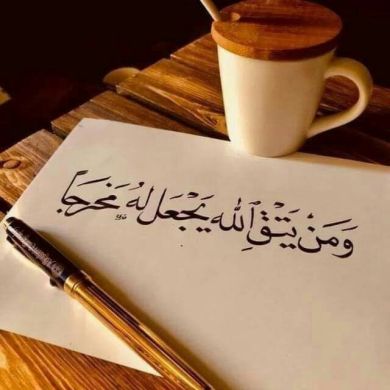 وَمَنْ يَتَّقِ ٱللَّه يَجْعَل لَهُ مَخْرَجَاً